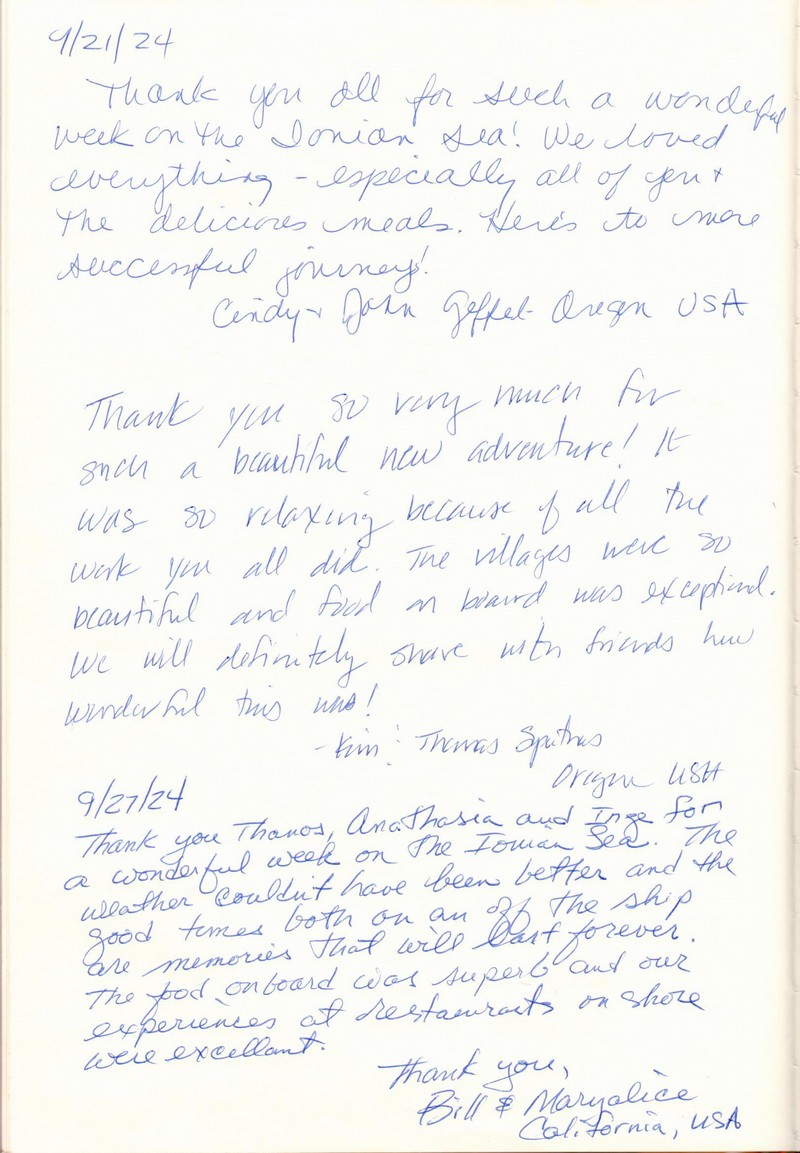 9/21/24
Thank you all for such a wonderful
week on the Ionian Sea! We loved
everything - especially all of you +
the delicious meals. Here's to more
successful journeys!
Cindy + John Geffel - Oregon USA
Thank you so very much for
such a beautiful new adventure! It
was so relaxing because of all the
work you all did. The villages were so
beautiful and food on board was exceptional.
We will definitely share with friends how
wonderful this was!
- Kim : Thomas
Oregon USA
9/27/24
Thank you Thanos, Anathasia and Inge for
a wonderful week on the Ionian Sea. The
weather couldn't have been better and the
good times both on an off the ship
are memories that will last forever.
The food onboard was superb and our
experiences at restaurants on shore
were excellant.
Thank you,
Bill & Maryalice
California, USA